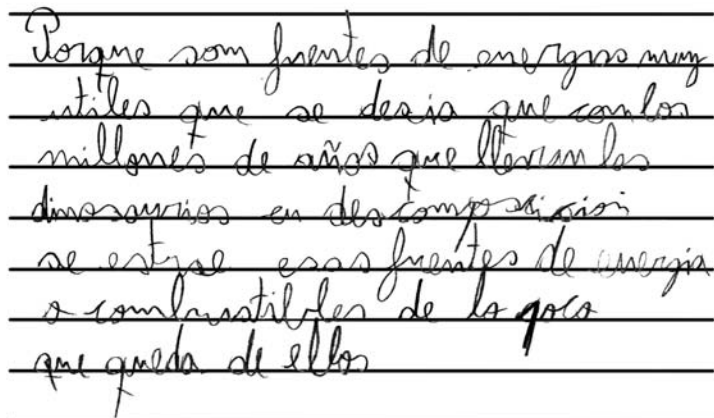 Porque som fuentes de energias muy
utiles que se desia que con los
millones de años que llevan los
dinosaurios en descomposicion
se estrae esas fuentes de energia
o combustibles de lo poco
que queda de ellos